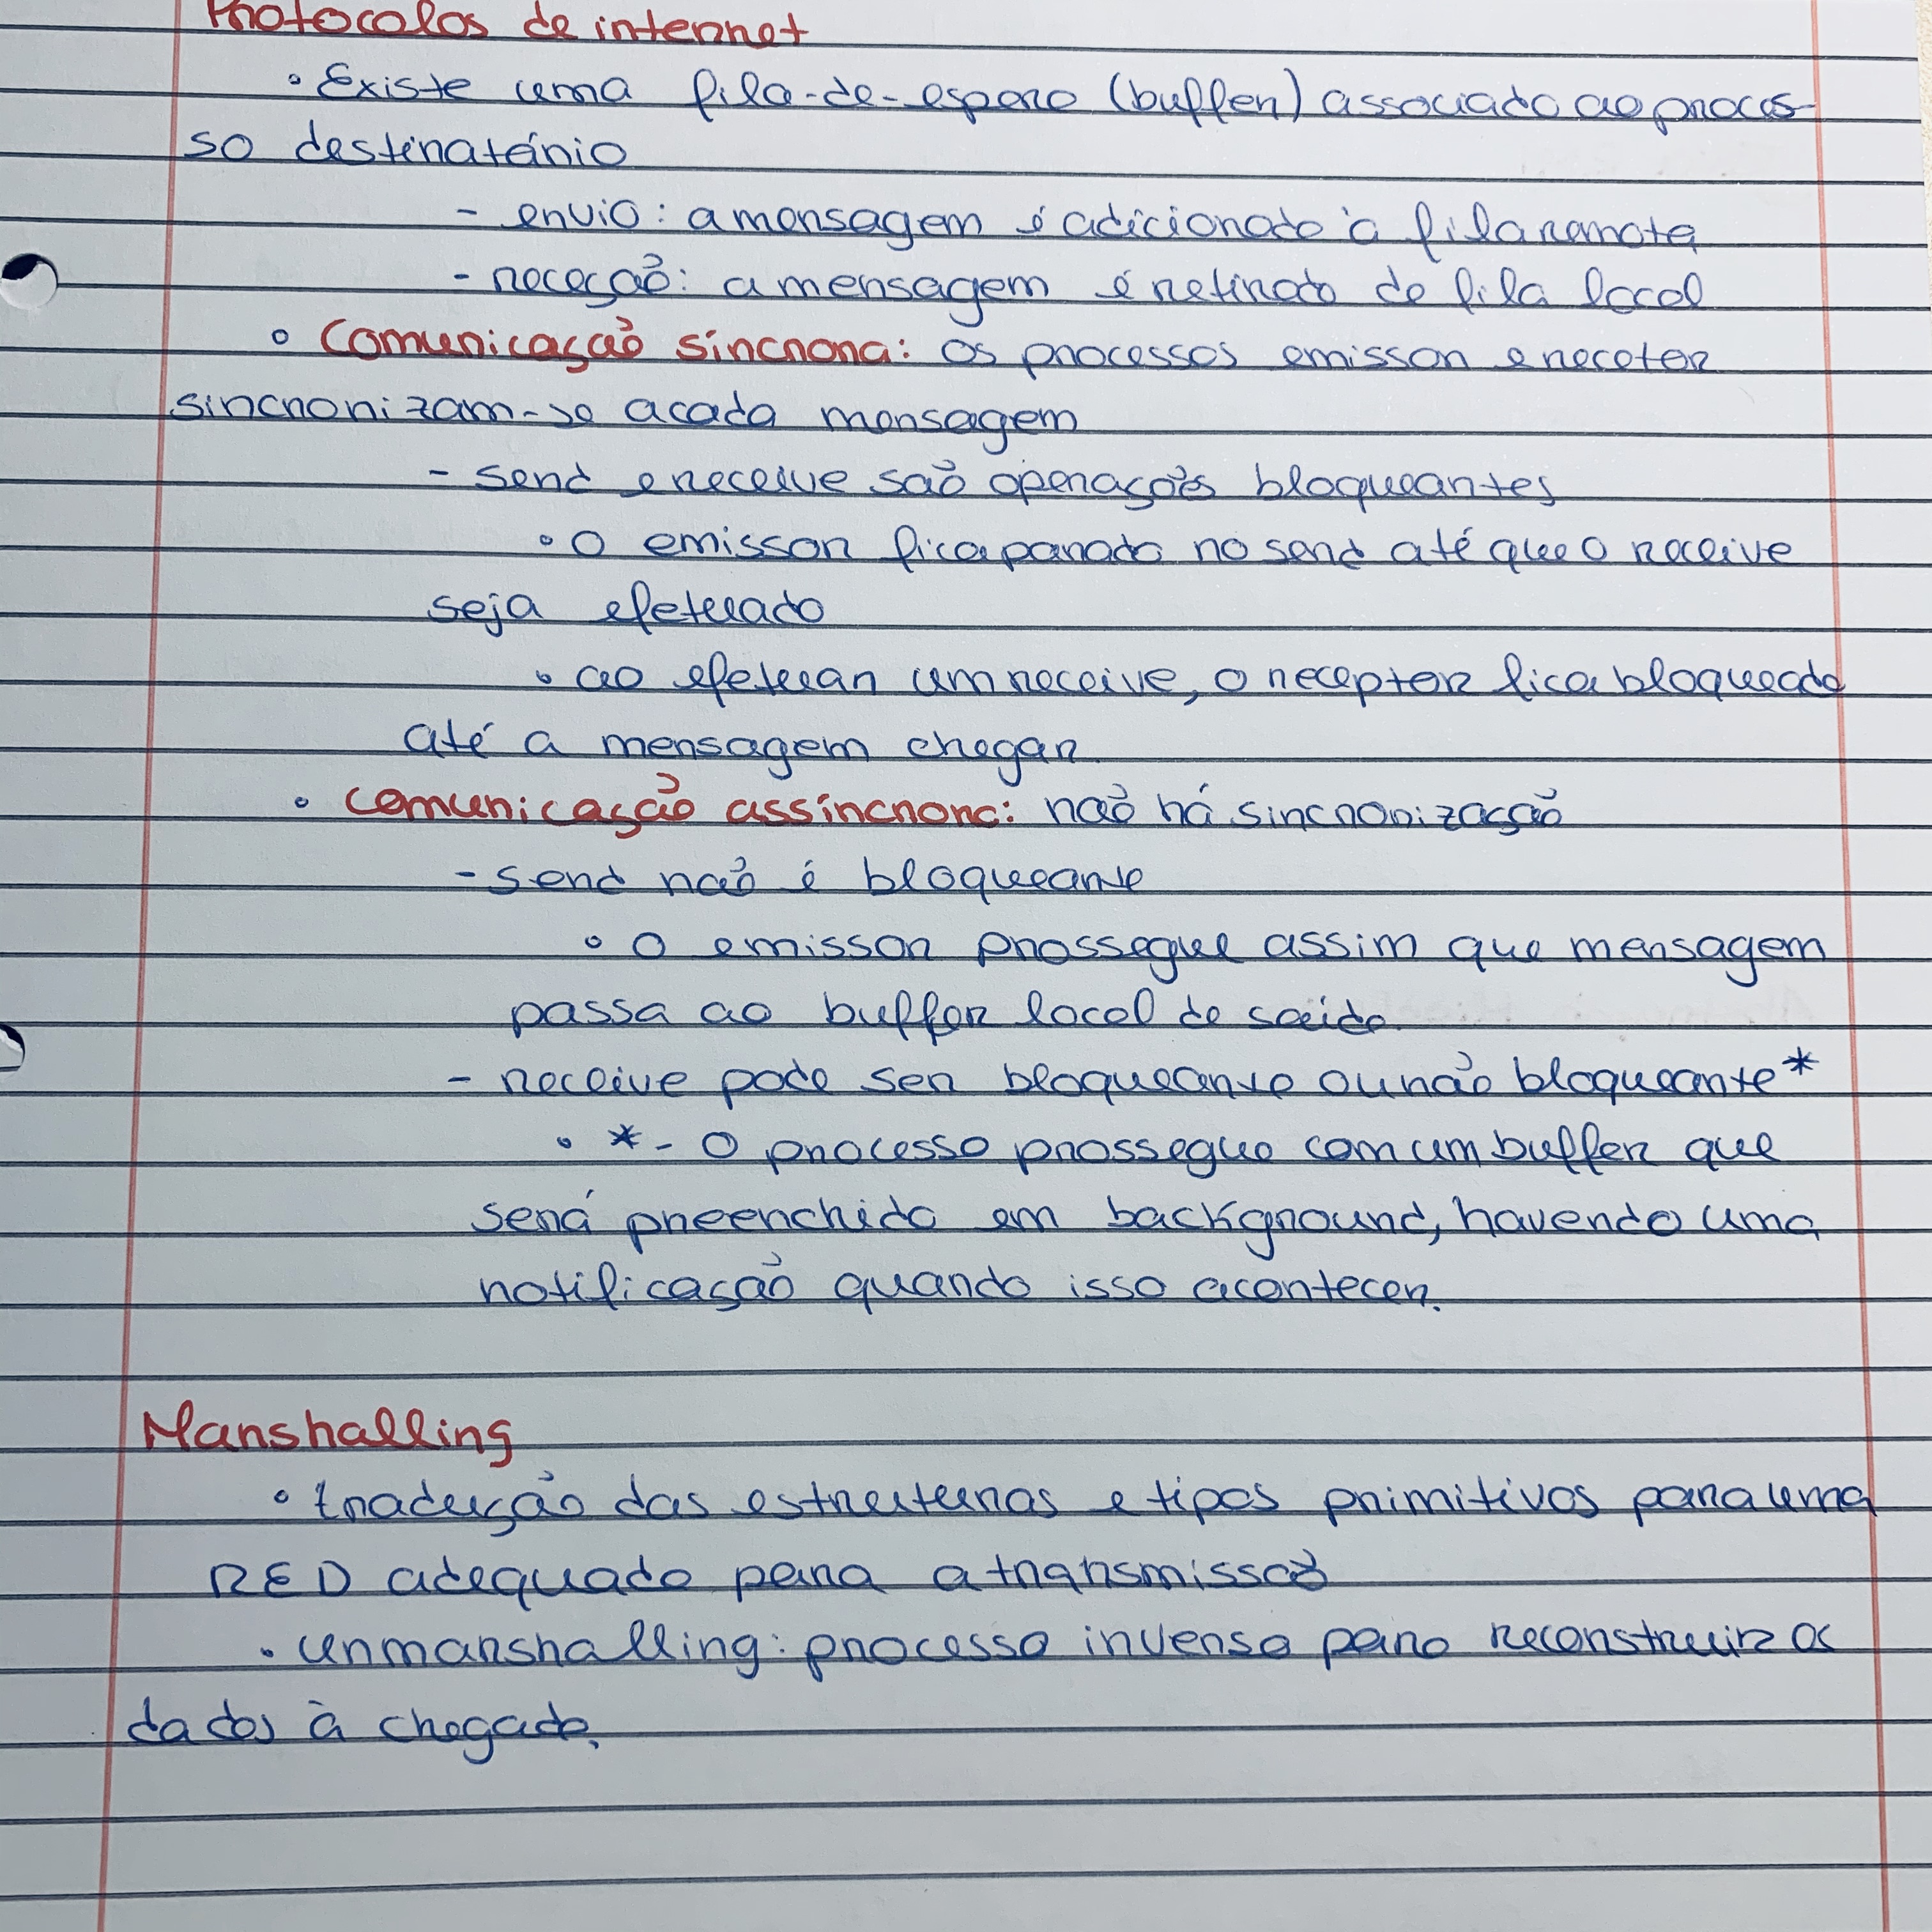 Protocolos de internet
• Existe uma fila-de-espera (buffer) associada ao proces-
so destinatário
- envio: a mensagem é adicionada à fila remota
- receção: a mensagem é retirada da fila local
• Comunicação síncrona: os processos emissor e recetor
sincronizam-se a cada mensagem
- send e receive são operações bloqueantes
• o emissor fica parado no send até que o receive
seja efetuado
• ao efetuar um receive, o receptor fica bloqueado
até a mensagem chegar
• Comunicação assíncrona: não há sincronização
- send não é bloqueante
• o emissor prossegue assim que mensagem
passa ao buffer local de saída.
- receive pode ser bloqueante ou não bloqueante*
• *- O processo prossegue com um buffer que
será preenchido em background, havendo uma
notificação quando isso acontecer.
Marshalling
• tradução das estruturas e tipos primitivos para uma
RED adequada para a transmissão
• unmarshalling: processo inverso para reconstruir os
dados à chegada.